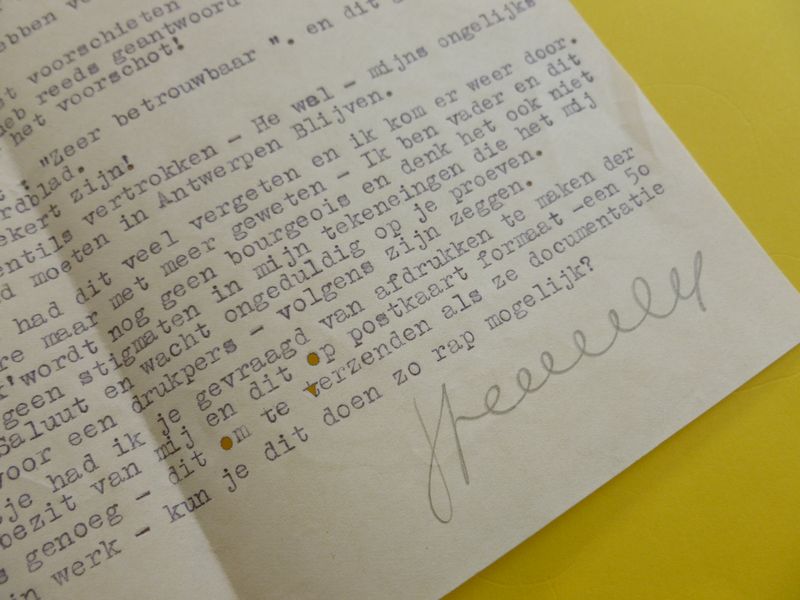 ebben
voorschieten
reeds geantwoord
het voorschot!
"Zeer betrouwbaar ". en dit
ekert zijn!
entils vertrokken - He wel - mijns ongelijks
moeten in Antwerpen Blijven.
had dit veel vergeten en ik kom er weer door.
re maar met meer geweten - Ik ben vader en dit
k'wordt nog geen bourgeois en denk het ook niet
geen stigmaten in mijn tekeneingen die het mij
Saluut en wacht ongeduldig op je proeven.
voor een drukpers - volgens zijn zeggen.
tje had ik je gevraagd van afdrukken te maken der
bezit van mij en dit op postkaart formaat -een 50
s genoeg - dit om te verzenden als ze documentatie
in werk - kun je dit doen zo rap mogelijk?